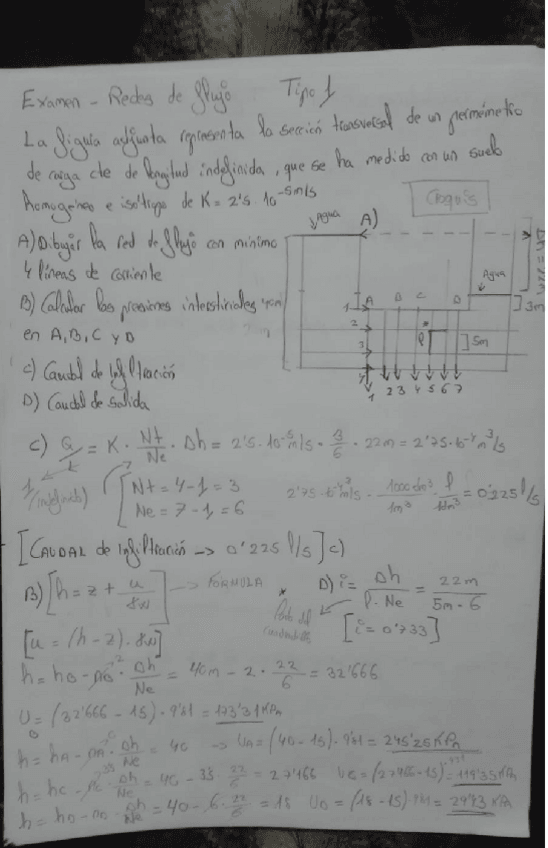 Examen - Redes de flujo Tipo 1
La figura adjunta representa la sección transversal de un permeámetro
de carga cte de longitud indefinida, que se ha medido con un suelo
homogéneo e isótropo de K = 2'5 · 10⁻⁵ m/s
Croquis
A) Dibujar la red de flujo con mínimo
4 líneas de corriente
B) Calcular las presiones intersticiales
en A, B, C y D
C) Caudal de infiltración
D) Caudal de salida
Agua A)
Δh = 22m
Agua
3m
1 A B C D
2
3 P 5m
4
1 2 3 4 5 6 7
C) Q/L = K · Nt/Ne · Δh = 2'5 · 10⁻⁵ m/s · 3/6 · 22m = 2'75 · 10⁻⁴ m³/s
1 (indefinido)
[Nt = 4-1 = 3
Ne = 7-1 = 6
2'75 · 10⁻⁴ m³/s · 1000 dm³/1m³ · l/1dm³ = 0'225 l/s
[CAUDAL de infiltración -> 0'225 l/s] C)
B) [h = z + u/γw] -> FÓRMULA
D) i = Δh/l·Ne = 22m/5m·6
[i = 0'733]
[u = (h-z) · γw]
h = hB - nB · Δh/Ne = 40m - 2 · 22/6 = 32'666
UB = (32'666 - 15) · 9'81 = 173'31 KPa
h = hA - nA · Δh/Ne = 40 -> UA = (40-15) · 9'81 = 245'25 KPa
h = hC - nC · Δh/Ne = 40 - 3'5 · 22/6 = 27'166 UC = (27'166-15) · 9'81 = 119'35 KPa
h = hD - nD · Δh/Ne = 40 - 6 · 22/6 = 18 UD = (18-15) · 9'81 = 29'43 KPa